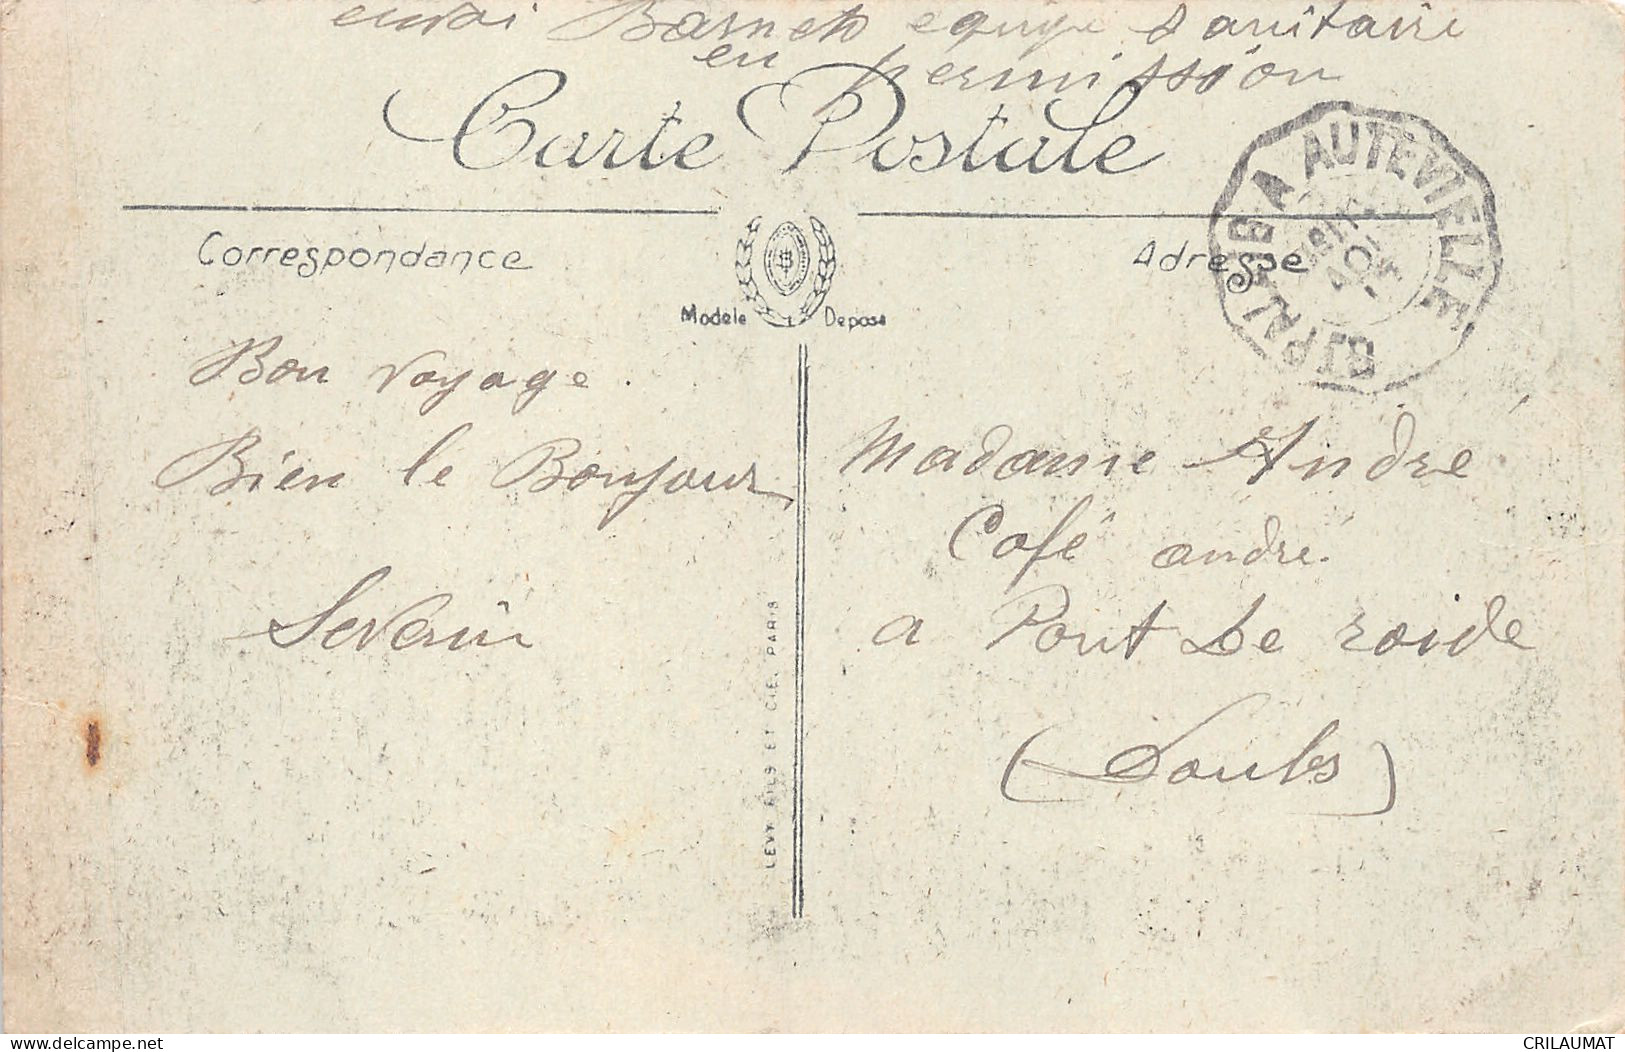 envoi Barneto equipe Sanitaire
en permission
Carte Postale
Correspondance
Adresse
Modèle Déposé
AUTEVILLE
Bon voyage.
Bien le Bonjour
Severin
LEVY FILS ET CIE, PARIS
Madame André
Café andré.
a Pont de roide
(Doubs)
delcampe.net
CRILAUMAT